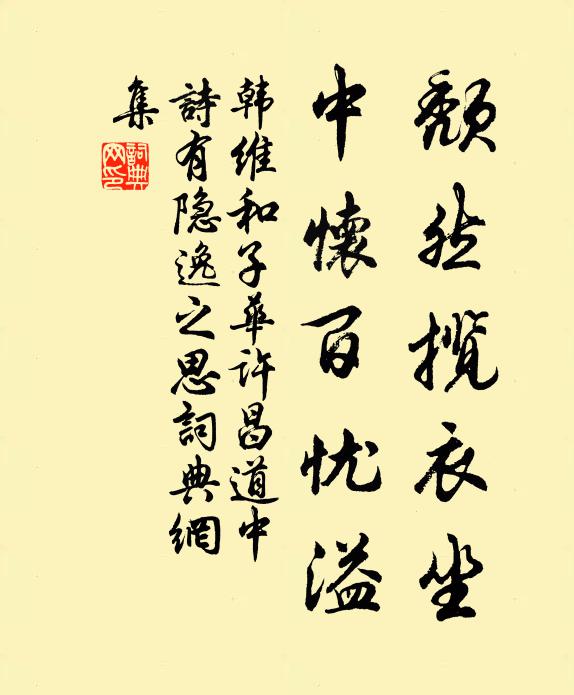 頹然揽衣坐
中懷百忧溢
韩维和子華许昌道中
詩有隐逸之思詞典網
集
詞典網印